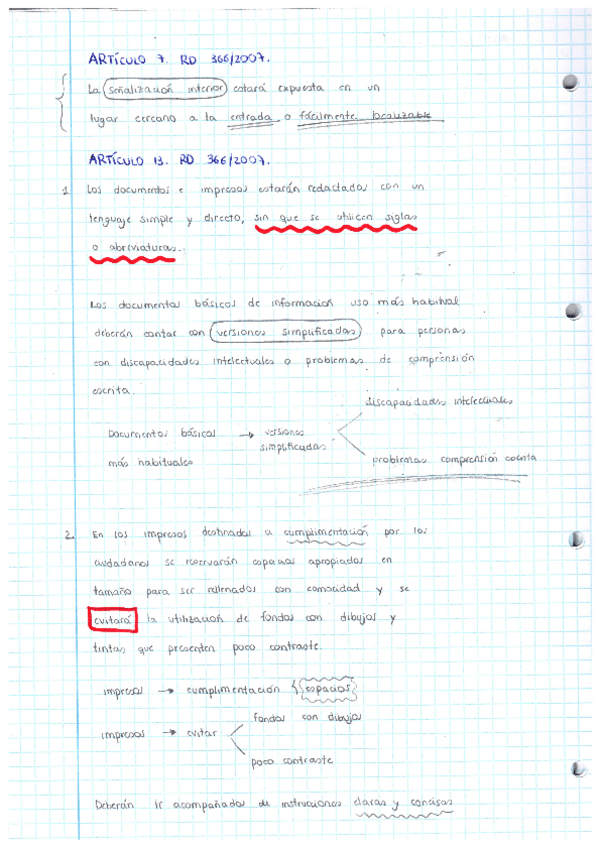 ARTÍCULO 7. RD 366/2007.
La señalización interior estará expuesta en un
lugar cercano a la entrada o fácilmente localizable
ARTÍCULO 13. RD 366/2007.
1 Los documentos e impresos estarán redactados con un
lenguaje simple y directo, sin que se utilicen siglas
o abreviaturas.
Los documentos básicos de información uso más habitual
deberán contar con versiones simplificadas para personas
con discapacidades intelectuales o problemas de comprensión
escrita.
discapacidades intelectuales
Documentos básicos → versiones
simplificadas
más habituales
problemas comprensión escrita
2. En los impresos destinados a cumplimentación por los
ciudadanos se reservarán espacios apropiados en
tamaño para ser rellenados con comodidad y se
evitará la utilización de fondos con dibujos y
tintas que presenten poco contraste.
impresos → cumplimentación {espacios}
fondos con dibujos
impresos → evitar
poco contraste
Deberán ir acompañados de instrucciones claras y concisas